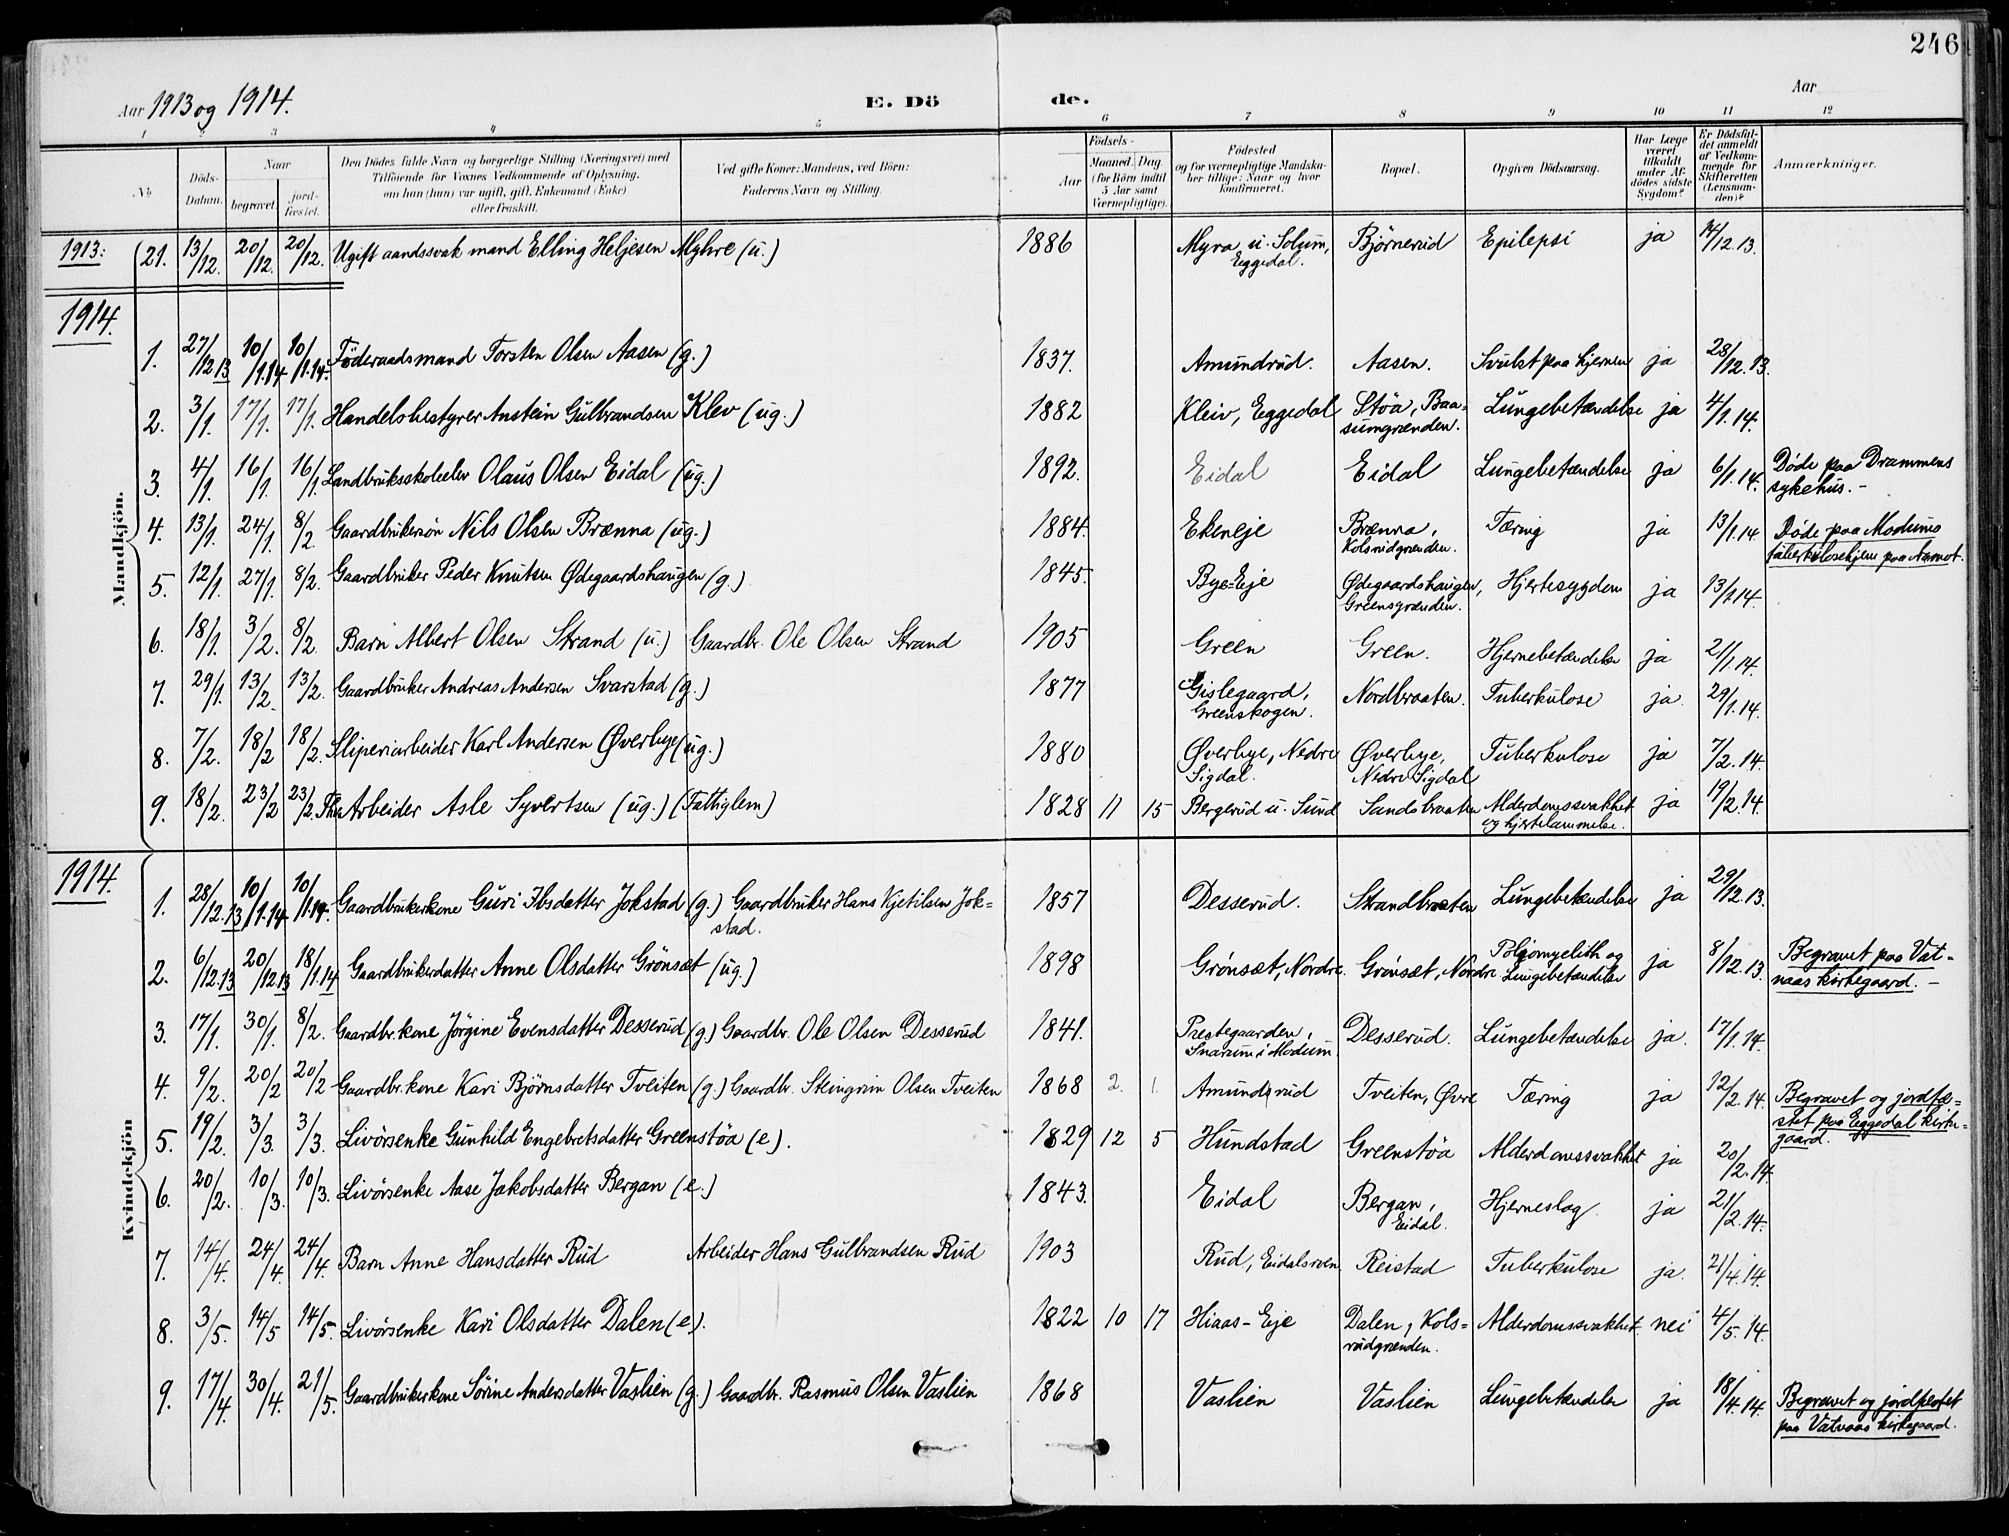 246
Aar 1913 og 1914. E. Dö de. Aar
1 2 3 4 5 6 7 8 9 10 11 12
No. Döds-Datum. Naar begravet. jordfæstet. Den Dödes fulde Navn og borgerlige Stilling (Næringsvei) med Tilföiende for Voxnes Vedkommende af Oplysning, om han (hun) var ugift, gift, Enkemand (Enke) eller fraskilt. Ved gifte Koner: Mandens, ved Börn: Faderens Navn og Stilling. Födsels- Aar Maaned. Dag. (for Börn indtil 5 Aar samt Værnepligtige). Födested og for værnepligtige Mandskaber tillige: Naar og hvor konfirmeret. Bopæl. Opgiven Dödsaarsag. Har Læge været tilkaldt under Afdödes sidste Sygdom? Er Dödsfaldet anmeldt af Vedkommende for Skifteretten (Lensmanden)? Anmærkninger.
1913: 21. 13/12. 20/12. 20/12. Ugift aandssvak mand Elling Heljesen Myhre (u.) 1886 Myra u. Solum, Eggedal. Björnerud Epilepsi ja 14/12.13.
1914.
Mandkjön.
1. 27/12.13 10/1.14 10/1.14. Föderaadsmand Torsten Olsen Aasen (g.) 1837. Amundrud. Aasen. Svulst paa hjernen ja 28/12.13.
2. 3/1. 17/1. 17/1. Handelsbestyrer Anstein Gulbrandsen Klev (ug.) 1882 Kleiv, Eggedal Støa, Baasumgrænden. Lungebetændelse ja 4/1.14.
3. 4/1. 16/1. 16/1. Landbruksskoleelev Olaus Olsen Eidal (ug.) 1892. Eidal Eidal Lungebetændelse ja 6/1.14. Døde paa Drammens sykehus. –
4. 13/1. 24/1. 8/2. Gaardbrukersøn Nils Olsen Brænna (ug.) 1884. Ekeneje Brænna, Kolsrudgrænden. Tæring ja 13/1.14 Døde paa Modums tuberkulosehjem paa Aamot.
5. 12/1. 27/1. 8/2. Gaardbruker Peder Knutsen Ødegaardshaugen (g.) 1845. Bye-Eje Ødegaardshaugen, Greensgrænden. Hjertesygdom ja 13/1.14.
6. 18/1. 3/2. 8/2. Barn Albert Olsen Strand (u.) Gaardbr. Ole Olsen Strand 1905 Green Green. Hjernebetændelse ja 21/1.14.
7. 29/1. 13/2. 13/2. Gaardbruker Andreas Andersen Svarstad (g.) 1877 Gislegaard, Greenskogen. Nordbraaten. Tuberkulose ja. 29/1.14.
8. 7/2. 18/2 18/2. Sliperiarbeider Karl Andersen Øverbye (ug.) 1880 Øverbye, Nedre Sigdal. Øverbye, Nedre Sigdal Tuberkulose ja 7/2.14.
9. 18/2. 23/2 23/2. Arbeider Asle Syvertsen (ug.) (Fattiglem) 1828 11 15 Bergerud u. Sund Sandsbraaten Alderdomssvakhet og hjertelammelse. ja 19/2.14.
1914.
Kvindekjön
1. 28/12.13 10/1.14 10/1.14. Gaardbrukerkone Guri Ibsdatter Jokstad (g.) Gaardbruker Hans Kjetilsen Jokstad. 1857 Desserud. Strandbraaten Lungebetændelse ja 29/12.13.
2. 6/12.13 20/12.13 18/1.14 Gaardbrukerdatter Anne Olsdatter Grönsæt (ug.) 1898 Grönsæt, Nordre. Grönsæt, Nordre Poliomyelith og Lungebetændelse ja 8/12.13. Begravet paa Vatnaas kirkegaard. –
3. 17/1. 30/1. 8/2. Gaardbr.kone Jörgine Evensdatter Desserud (g.) Gaardbr. Ole Olsen Desserud 1841. Prestegaarden, Snarum i Modum Desserud. Lungebetændelse ja. 17/1.14.
4. 9/2. 20/2 20/2 Gaardbr.kone Kari Bjørnsdatter Tveiten (g.) Gaardbr. Steingrim Olsen Tveiten 1868 2. 1. Amundsrud Tveiten, Øvre Tæring ja 12/2.14. Begravet og jordfæstet paa Eggedal kirkegaard.
5. 19/2. 3/3. 3/3. Livörsenke Gunhild Engebretsdatter Greenstøa (e). 1829 12 5 Hundstad Greenstøa Alderdomssvakhet ja 20/2.14.
6. 20/2. 10/3. 10/3. Livörsenke Aase Jakobsdatter Bergan (e.) 1843. Eidal Bergan, Eidal. Hjerneslag. ja 21/2.14.
7. 14/4. 24/4. 24/4. Barn Anne Hansdatter Rud Arbeider Hans Gulbrandsen Rud 1903 Rud, Reistad Tuberkulose ja. 21/4.14.
8. 3/5. 14/5 14/5. Livörsenke Kari Olsdatter Dalen (e). 1822 10 17 Hiaas-Eje Dalen, Kolsrudgrænden. Alderdomssvakhet nei 4/5.14.
9. 17/4. 30/4. 21/5. Gaardbrukerkone Sörine Andersdatter Vaslien (g.) Gaardbr. Rasmus Olsen Vaslien 1868 Vaslien Vaslien Lungebetændelse ja 18/4.14. Begravet og jordfæstet paa Vatnaas kirkegaard.